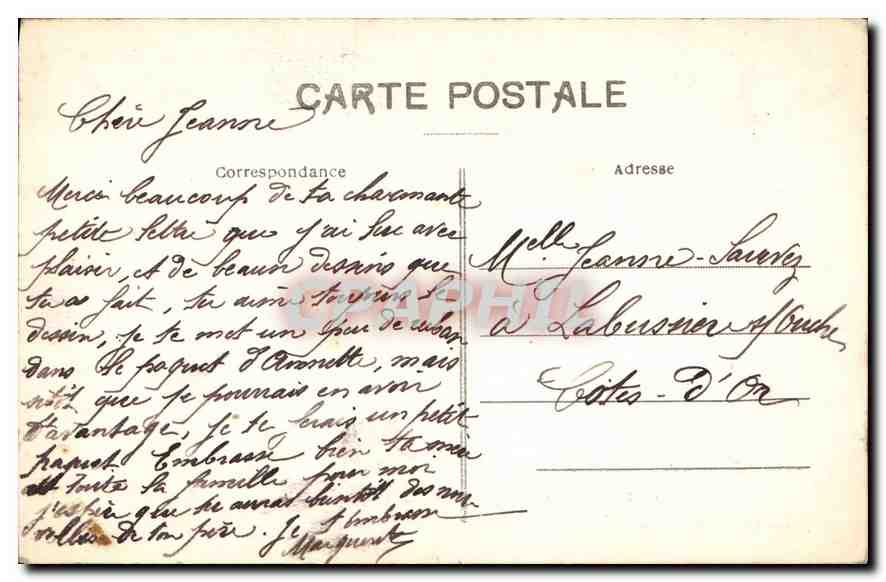 CARTE POSTALE
Chère Jeanne
Correspondance
Merci beaucoup de ta charmante
petite lettre que j'ai lue avec
plaisir, et de beaux dessins que
tu as fait, tu aime toujours le
dessin, je te met un peu de ruban
dans le paquet d'Annette, mais
que je pourrais en avoir
d'avantage, je te ferais un petit
paquet. Embrasse bien ta mère
et toute la famille pour moi
j'espère que tu auras bientôt des nou
velles de ton père. Je t'embrasse
Marguerite
Adresse
Melle Jeanne Sauvez
à Labussière s/Ouche
Côtes-d'Or
CPAPHIL